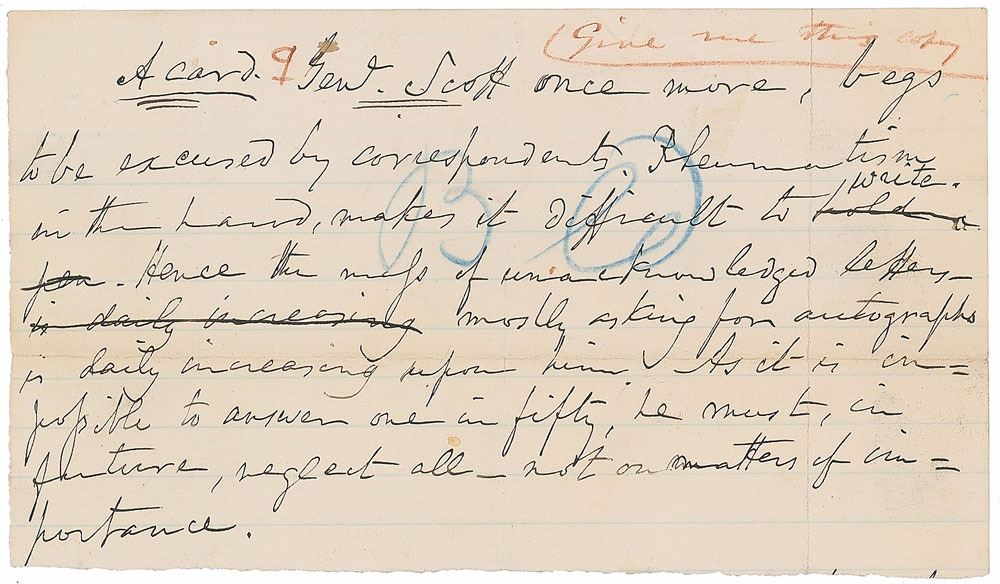 (Give me this copy
A card. Genl. Scott once more, begs
to be excused by correspondents. Rheumatism
in the hand, makes it difficult to hold a write.
pen. Hence the mass of unacknowledged letters—
is daily increasing mostly asking for autographs
is daily increasing upon him. As it is im=
possible to answer one in fifty, he must, in
future, neglect all — not on matters of im=
portance.